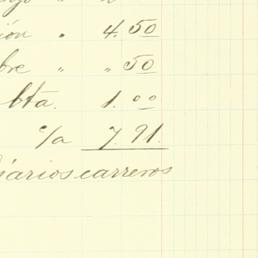 ión " 4.50
bre " " 50
bta. 1.00
c/a 7.91.
iarios carreros